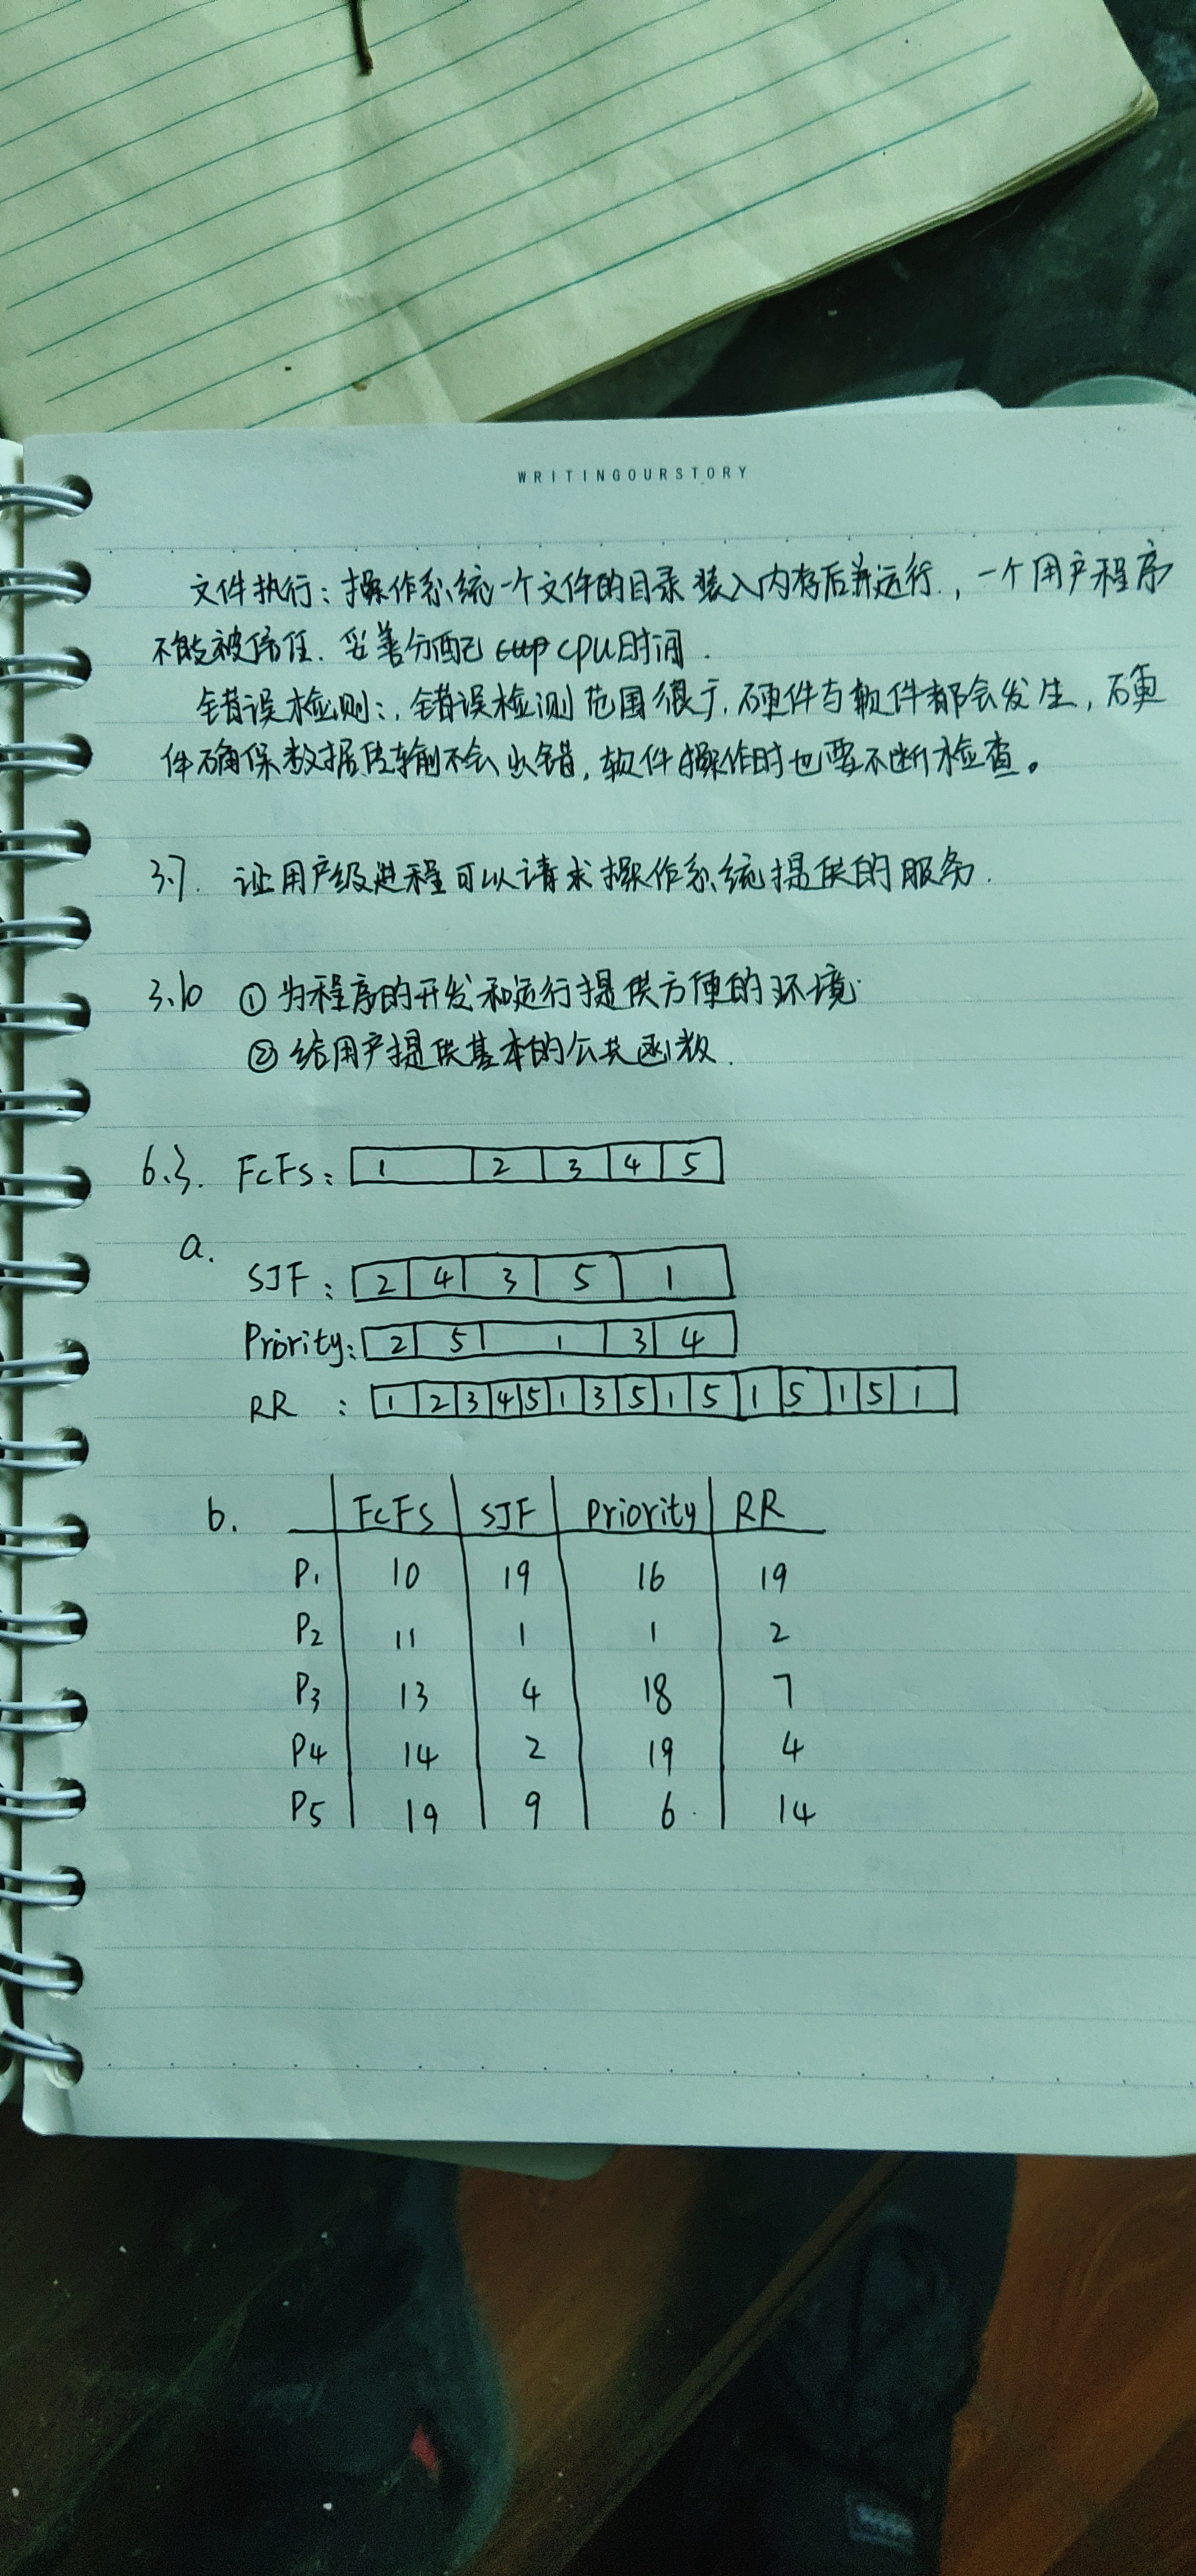 WRITINGOURSTORY
文件执行：操作系统一个文件的目录装入内存后并运行.，一个用户程序
不能被信任.妥善分配 CPU时间.
错误检测：，错误检测范围很广，硬件与软件都会发生，硬
件确保数据传输不会出错，软件操作时也要不断检查。
3.7. 让用户级进程可以请求操作系统提供的服务.
3.10 ① 为程序的开发和运行提供方便的环境.
② 给用户提供基本的公共函数.
6.3. FCFS: 1 2 3 4 5
a.
SJF: 2 4 3 5 1
Priority: 2 5 1 3 4
RR : 1 2 3 4 5 1 3 5 1 5 1 5 1 5 1
b. FCFS SJF Priority RR
P1 10 19 16 19
P2 11 1 1 2
P3 13 4 18 7
P4 14 2 19 4
P5 19 9 6. 14